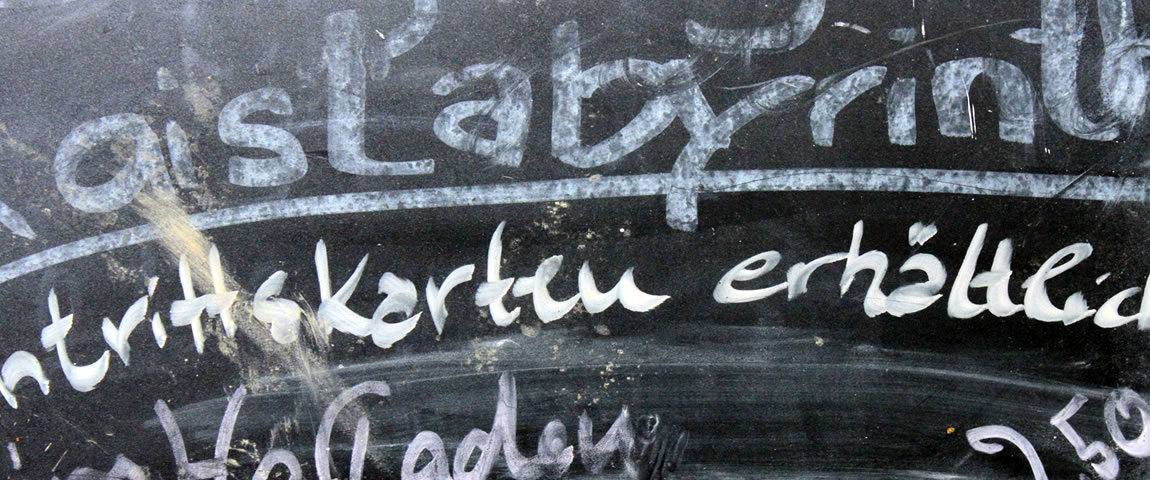 aisLabyrint
ntrittskarten erhältlic
Hofladen 2,50